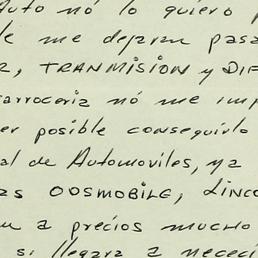 Auto nó lo quiero p
le me dejaran pasa
R, TRANMISION y DIF
arroceria nó me imp
er posible conseguirlo
al de Automoviles, ya
as OOSMOBILE, LINCO
u a precios mucho
si llegara a nececi